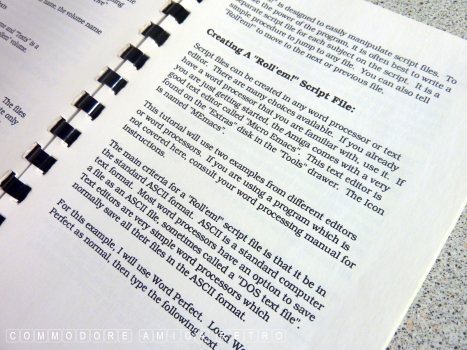 me, the volume name
and "Tools" is a
volume.
The files
t only
" is designed to easily manipulate script files. To
the power of the program, it is often best to write a
separate script file for each subject on the script. It is a
simple procedure to jump to any file. You can also tell
"Roll'em!" to move to the next or previous file.
Creating A "Roll'em!" Script File:
Script files can be created in any word processor or text
editor. There are many choices available. If you already
have a word processor that you are familiar with, use it. If
you are just getting started, the Amiga comes with a very
good text editor called "Micro Emacs". This text editor is
found on the "Extras" disk in the "Tools" drawer. The Icon
is named "MEmacs".
This tutorial will use two examples from different editors
or word processors. If you are using a program which is
not covered here, consult your word processing manual for
instructions.
The main criteria for a "Roll'em!" script file is that it be in
the standard ASCII format. ASCII is a standard computer
text format. Most word processors have an option to save
a file as an ASCII file, sometimes called a "DOS text file".
Text editors are very simple word processors which
normally save all their files in the ASCII format.
For this example, I will use Word Perfect. Load Wo
Perfect as normal, then type the following text
COMMODORE AMIGA RETRO